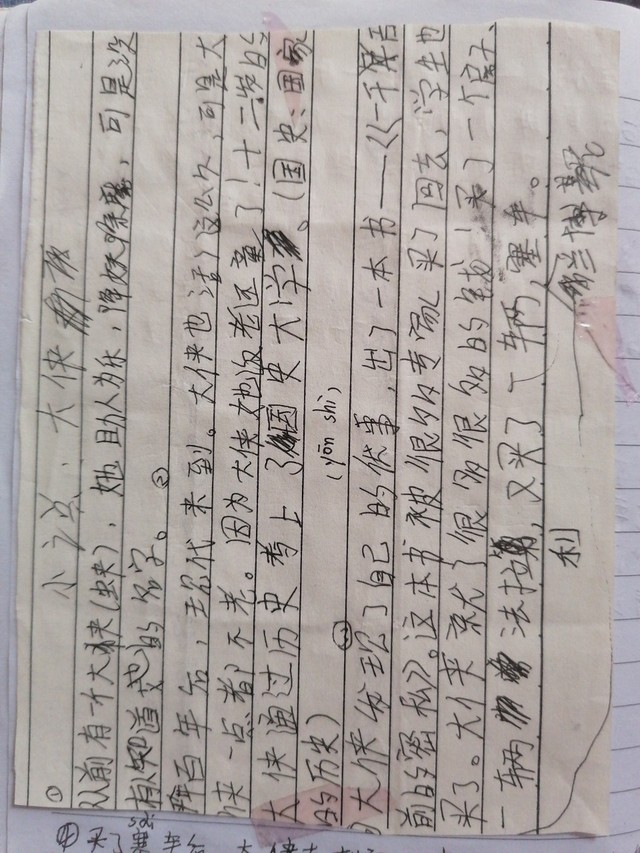 小说：大侠
①
从前有个大侠(虫夹)，她助人为乐，降妖除魔，可是没
有人知道她的名字。②
百年后，现代来到。大侠也活了这么久，可是大
侠一点都不老。因为大侠她返老还童了！十二岁的
大侠通过历史考上了国史大学。(国史：国家
的历史)
③大侠发现了自己的佚事，出了一本书——《一千年
前的密私》。这本书被很多专家买了回去，学生也
买了。大侠就有了很多很多的钱！买了一个房子、
一辆法拉利，又买了一辆塞车。
兰博
④买了塞车后，大侠